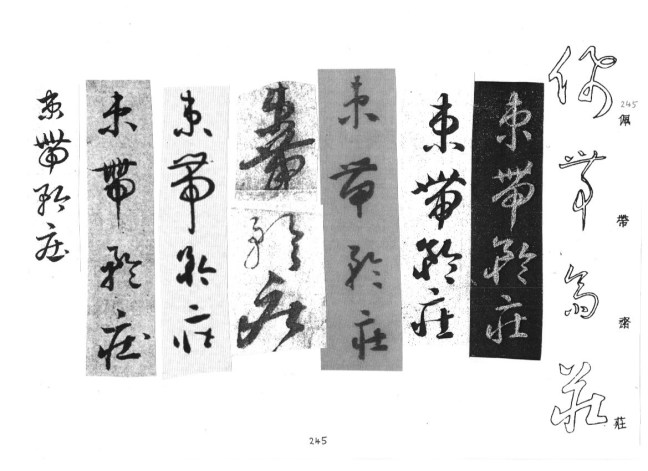 245
佩帶齋莊
佩帶齋莊
束帶矜莊
束帶矜莊
束帶矜莊
束帶矜莊
束帶矜莊
束帶矜莊
束帶矜莊
245